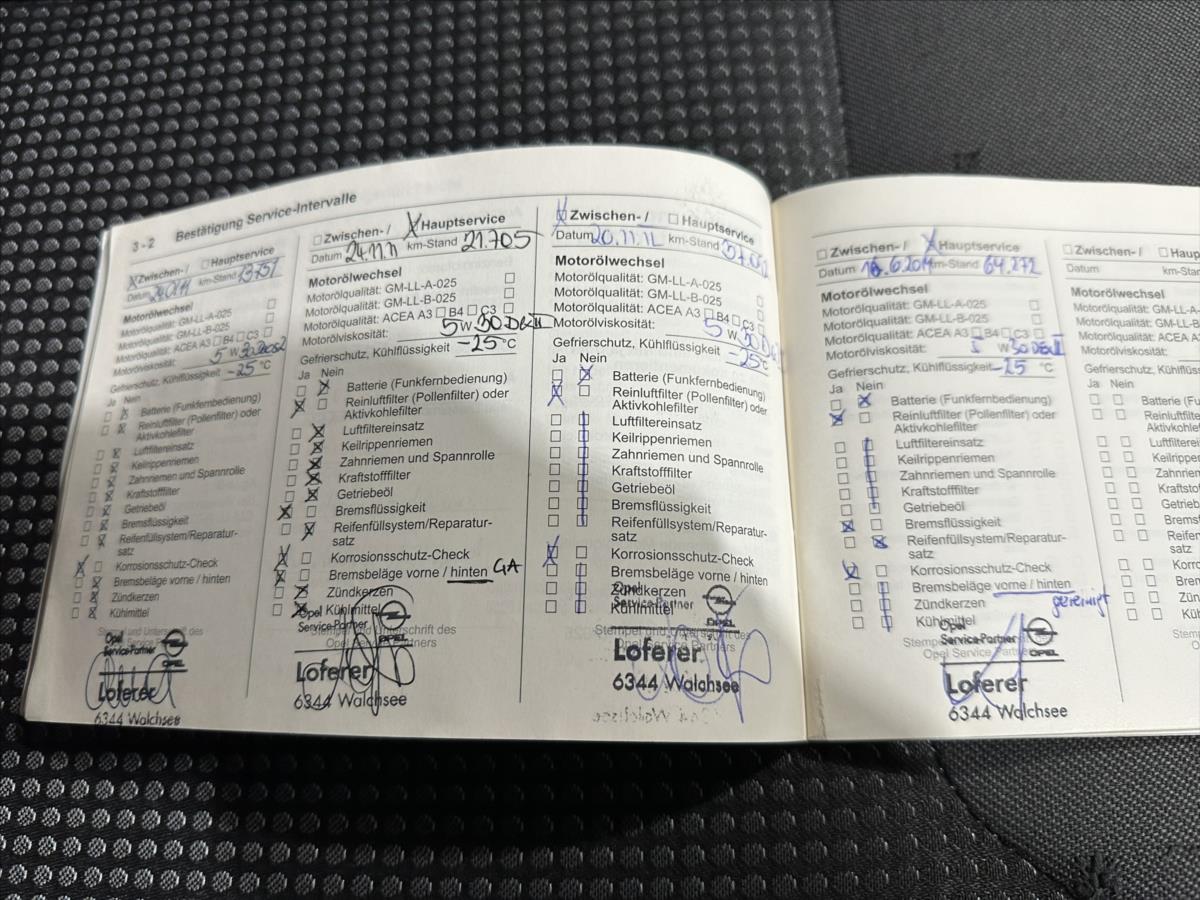 3 - 2 Bestätigung Service-Intervalle
Zwischen- / Hauptservice
Datum km-Stand
Motorölwechsel
Motorölqualität: GM-LL-A-025
Motorölqualität: GM-LL-B-025
Motorölqualität: ACEA A3 B4 C3
Motorölviskosität: 5 W 30
Gefrierschutz, Kühlflüssigkeit -25 °C
Ja Nein
Batterie (Funkfernbedienung)
Reinluftfilter (Pollenfilter) oder
Aktivkohlefilter
Luftfiltereinsatz
Keilrippenriemen
Zahnriemen und Spannrolle
Kraftstofffilter
Getriebeöl
Bremsflüssigkeit
Reifenfüllsystem/Reparatur-
satz
Korrosionsschutz-Check
Bremsbeläge vorne / hinten
Zündkerzen
Kühlmittel
Stempel und Unterschrift des
Opel
Service-Partner
OPEL
Loferer
6344 Walchsee
Zwischen- / Hauptservice
Datum 24.11.11 km-Stand 21.705
Motorölwechsel
Motorölqualität: GM-LL-A-025
Motorölqualität: GM-LL-B-025
Motorölqualität: ACEA A3 B4 C3
Motorölviskosität: 5 W 30
Gefrierschutz, Kühlflüssigkeit -25 °C
Ja Nein
Batterie (Funkfernbedienung)
Reinluftfilter (Pollenfilter) oder
Aktivkohlefilter
Luftfiltereinsatz
Keilrippenriemen
Zahnriemen und Spannrolle
Kraftstofffilter
Getriebeöl
Bremsflüssigkeit
Reifenfüllsystem/Reparatur-
satz
Korrosionsschutz-Check
Bremsbeläge vorne / hinten GA
Zündkerzen
Kühlmittel
Stempel und Unterschrift des
Opel Service Partners
Opel
Service-Partner
OPEL
Loferer
6344 Walchsee
Zwischen- / Hauptservice
Datum km-Stand
Motorölwechsel
Motorölqualität: GM-LL-A-025
Motorölqualität: GM-LL-B-025
Motorölqualität: ACEA A3 B4 C3
Motorölviskosität: 5 W 30
Gefrierschutz, Kühlflüssigkeit -25 °C
Ja Nein
Batterie (Funkfernbedienung)
Reinluftfilter (Pollenfilter) oder
Aktivkohlefilter
Luftfiltereinsatz
Keilrippenriemen
Zahnriemen und Spannrolle
Kraftstofffilter
Getriebeöl
Bremsflüssigkeit
Reifenfüllsystem/Reparatur-
satz
Korrosionsschutz-Check
Bremsbeläge vorne / hinten
Zündkerzen
Kühlmittel
Stempel und Unterschrift des
Opel Service Partners
Opel
Service-Partner
OPEL
Loferer
6344 Walchsee
Zwischen- / Hauptservice
Datum km-Stand 64.272
Motorölwechsel
Motorölqualität: GM-LL-A-025
Motorölqualität: GM-LL-B-025
Motorölqualität: ACEA A3 B4 C3
Motorölviskosität: W 30
Gefrierschutz, Kühlflüssigkeit -25 °C
Ja Nein
Batterie (Funkfernbedienung)
Reinluftfilter (Pollenfilter) oder
Aktivkohlefilter
Luftfiltereinsatz
Keilrippenriemen
Zahnriemen und Spannrolle
Kraftstofffilter
Getriebeöl
Bremsflüssigkeit
Reifenfüllsystem/Reparatur-
satz
Korrosionsschutz-Check
Bremsbeläge vorne / hinten
gereinigt
Zündkerzen
Kühlmittel
Opel Service Partners
Opel
Service-Partner
OPEL
Loferer
6344 Walchsee
Zwischen- /
Datum km-Stand
Motorölwechsel
Motorölqualität: GM-LL-A
Motorölqualität: GM-LL-B
Motorölqualität: ACEA A3
Motorölviskosität:
Gefrierschutz, Kühlflüssig
Ja Nein
Batterie (Fu
Reinluftfilte
Aktivkohlef
Luftfiltere
Keilrippen
Zahnriem
Kraftstof
Getriebe
Bremsf
Reifen
satz
Korro
Brem
Zün
Kü